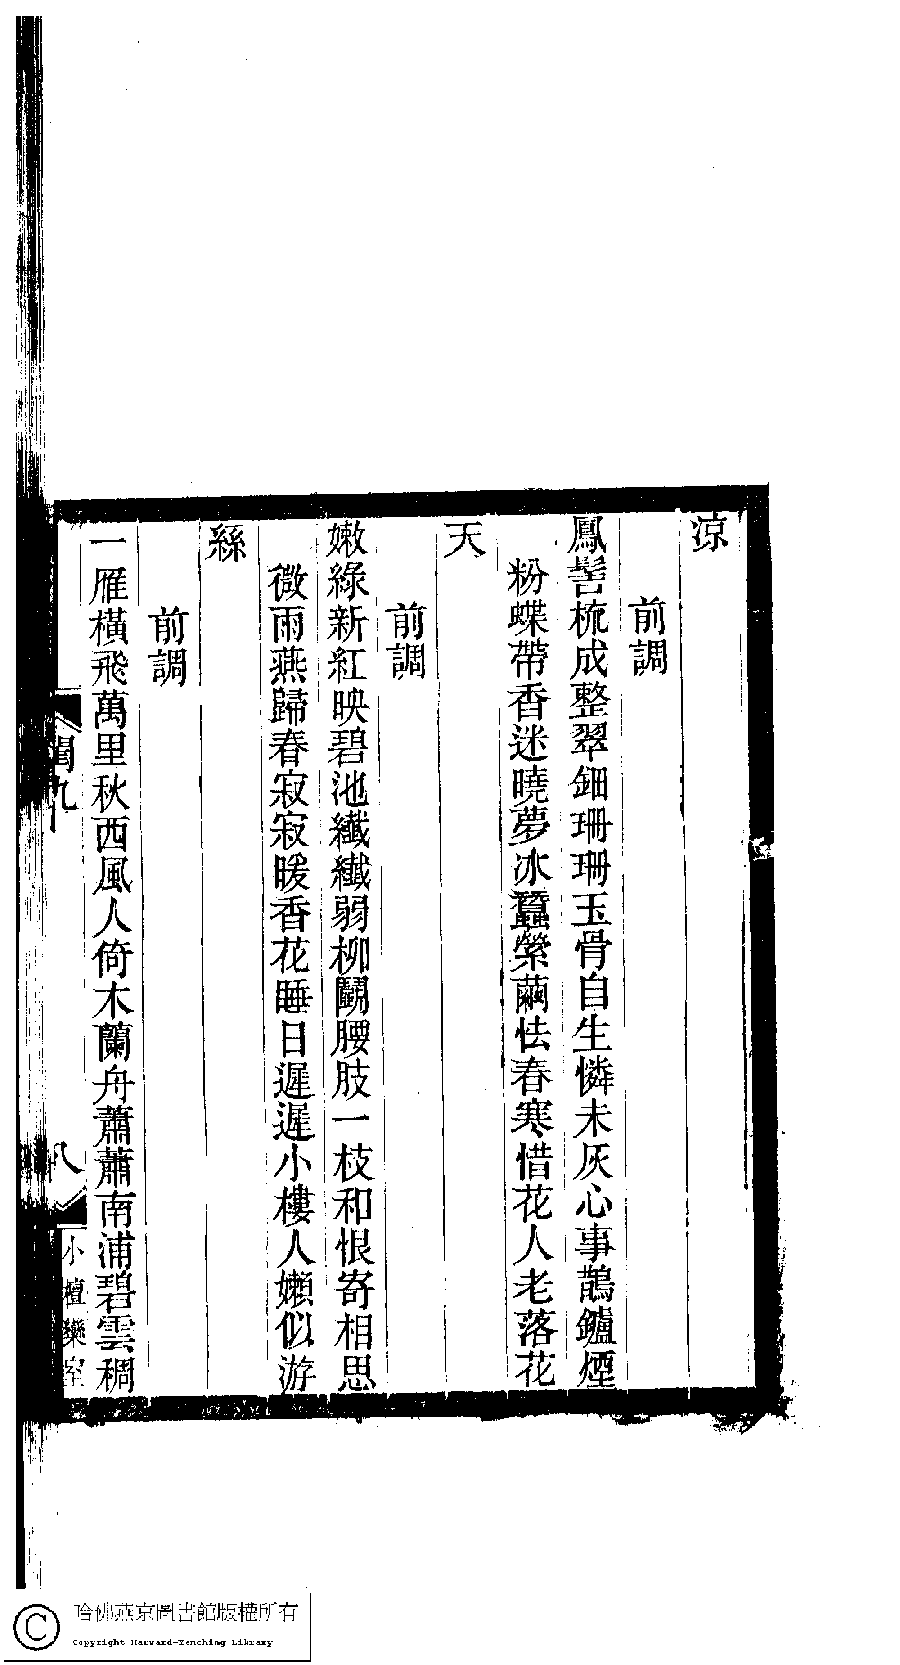 涼
前調
鳳髻梳成整翠鈿珊珊玉骨自生憐未灰心事鵲鑪煙
粉蝶帶香迷曉夢冰蠶縈繭怯春寒惜花人老落花
天
前調
嫩綠新紅映碧池纖纖弱柳鬭腰肢一枝和恨寄相思
微雨燕歸春寂寂暖香花睡日遲遲小樓人嬾似游
絲
前調
一雁橫飛萬里秋西風人倚木蘭舟蕭蕭南浦碧雲稠
閨九
八
小檀欒室
哈佛燕京圖書館版權所有
Copyright Harvard-Yenching Library